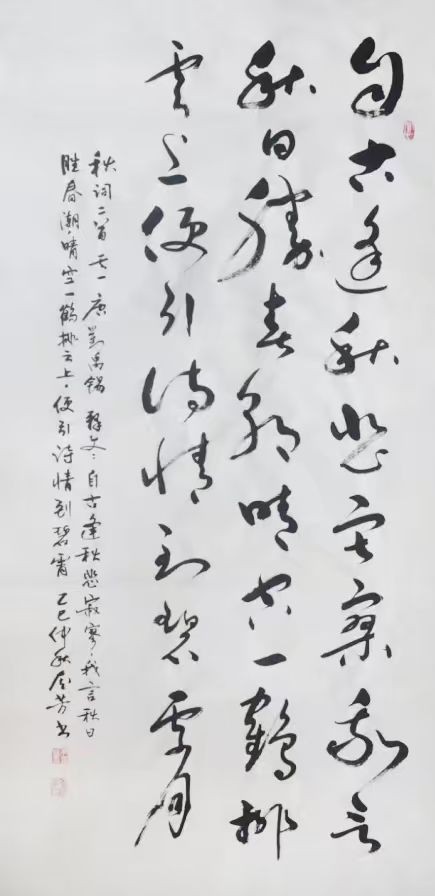 自古逢秋悲寂寥我言
秋日勝春朝晴空一鶴排
雲上便引诗情到碧霄
秋词二首 其一 唐 刘禹锡 释文：自古逢秋悲寂寥，我言秋日
胜春潮，晴空一鹤排云上，便引诗情到碧霄 乙巳仲秋 芳书